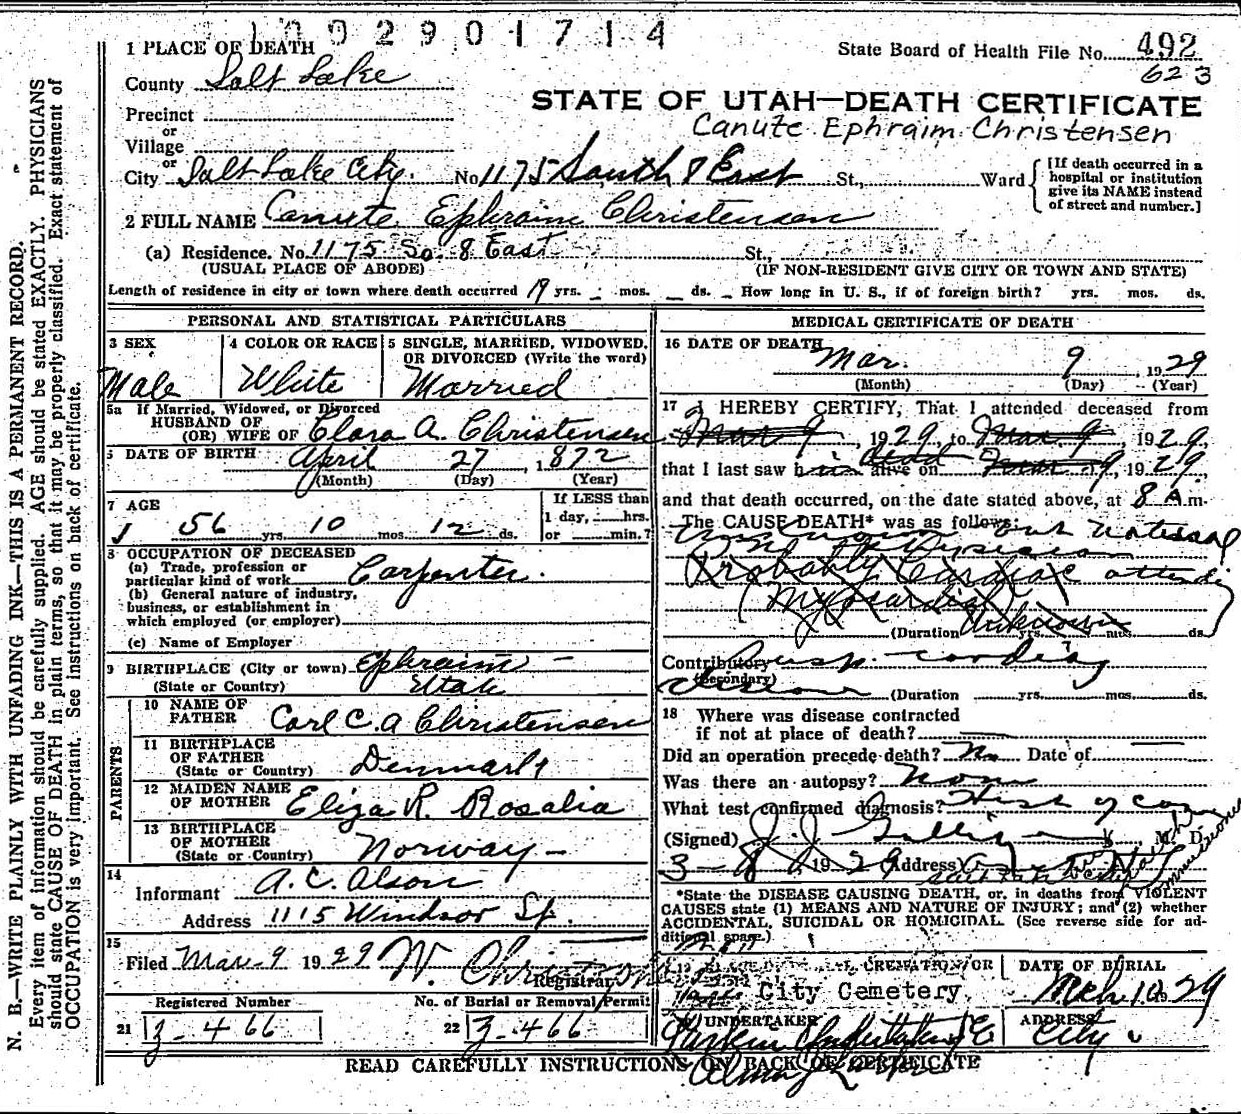 1002901714
State Board of Health File No. 492
623
STATE OF UTAH—DEATH CERTIFICATE
Canute Ephraim Christensen
1 PLACE OF DEATH
County Salt Lake
Precinct
or
Village
or
City Salt Lake City. No 1175 South 8 East St., Ward
[If death occurred in a
hospital or institution
give its NAME instead
of street and number.]
2 FULL NAME Canute Ephraim Christensen
(a) Residence. No. 1175 So. 8 East St.,
(USUAL PLACE OF ABODE) (IF NON-RESIDENT GIVE CITY OR TOWN AND STATE)
Length of residence in city or town where death occurred 19 yrs. – mos. – ds. – How long in U. S., if of foreign birth? yrs. mos. ds.
PERSONAL AND STATISTICAL PARTICULARS
3 SEX
Male
4 COLOR OR RACE
White
5 SINGLE, MARRIED, WIDOWED,
OR DIVORCED (Write the word)
Married
5a If Married, Widowed, or Divorced
HUSBAND OF
(OR) WIFE OF Clara A. Christensen
6 DATE OF BIRTH April 27, 1872
(Month) (Day) (Year)
7 AGE
56 yrs. 10 mos. 12 ds.
If LESS than
1 day, hrs.
or min.?
8 OCCUPATION OF DECEASED
(a) Trade, profession or
particular kind of work Carpenter.
(b) General nature of industry,
business, or establishment in
which employed (or employer)
(c) Name of Employer
9 BIRTHPLACE (City or town) Ephraim –
(State or Country) Utah
PARENTS
10 NAME OF
FATHER Carl C. A Christensen
11 BIRTHPLACE
OF FATHER
(State or Country) Denmark
12 MAIDEN NAME
OF MOTHER Eliza R. Rosalia
13 BIRTHPLACE
OF MOTHER
(State or Country) Norway –
14
Informant A. C. Olson
Address 1115 Windsor St.
15
Filed Mar 9 1929 W. Christensen
Registrar
Registered Number
21 3-466
No. of Burial or Removal Permit
22 3-466
MEDICAL CERTIFICATE OF DEATH
16 DATE OF DEATH
Mar. 9, 1929
(Month) (Day) (Year)
17 I HEREBY CERTIFY, That I attended deceased from
Mar 9, 1929, to Mar. 9, 1929,
that I last saw h im alive on dead 9, 1929,
and that death occurred, on the date stated above, at 8 A.m.
The CAUSE DEATH* was as follows:
but natural
No Physician
Probably Cardiac attending
(Myocardial
(Duration Unknown yrs. mos. ds.
Contributory cardiac
(Secondary)
disease (Duration yrs. mos. ds.
18 Where was disease contracted
if not at place of death? —
Did an operation precede death? No Date of —
Was there an autopsy? None
What test confirmed diagnosis? Hist of case
(Signed) J. J. M. D.
3-8 1929 (Address)
*State the DISEASE CAUSING DEATH, or, in deaths from VIOLENT
CAUSES state (1) MEANS AND NATURE OF INJURY; and (2) whether
ACCIDENTAL, SUICIDAL OR HOMICIDAL. (See reverse side for ad-
ditional space.)
CREMATION OR
City Cemetery
DATE OF BURIAL
Mch 10 1929
UNDERTAKER
Larkin Undertaking Co
ADDRESS
City
READ CAREFULLY INSTRUCTIONS ON BACK OF CERTIFICATE
N. B.—WRITE PLAINLY WITH UNFADING INK—THIS IS A PERMANENT RECORD.
Every item of information should be carefully supplied. AGE should be stated EXACTLY. PHYSICIANS
should state CAUSE OF DEATH in plain terms, so that it may be properly classified. Exact statement of
OCCUPATION is very important. See instructions on back of certificate.